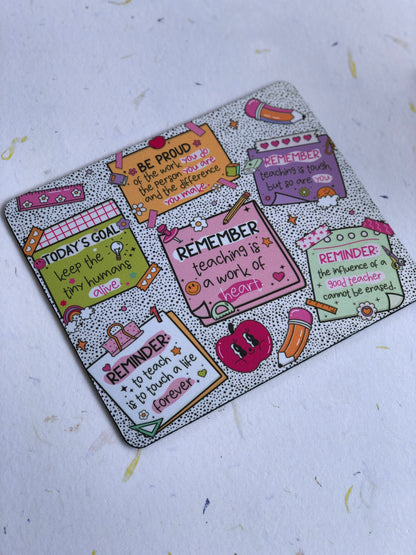 BE PROUD
of the work you do
the person you are
and the difference
you make.
REMEMBER
teaching is tough,
but so are you
TODAY'S GOAL
keep the
tiny humans
alive
REMEMBER
teaching is
a work of
heart
REMINDER:
the influence of a
good teacher
cannot be erased.
REMINDER:
to teach
is to touch a life
forever